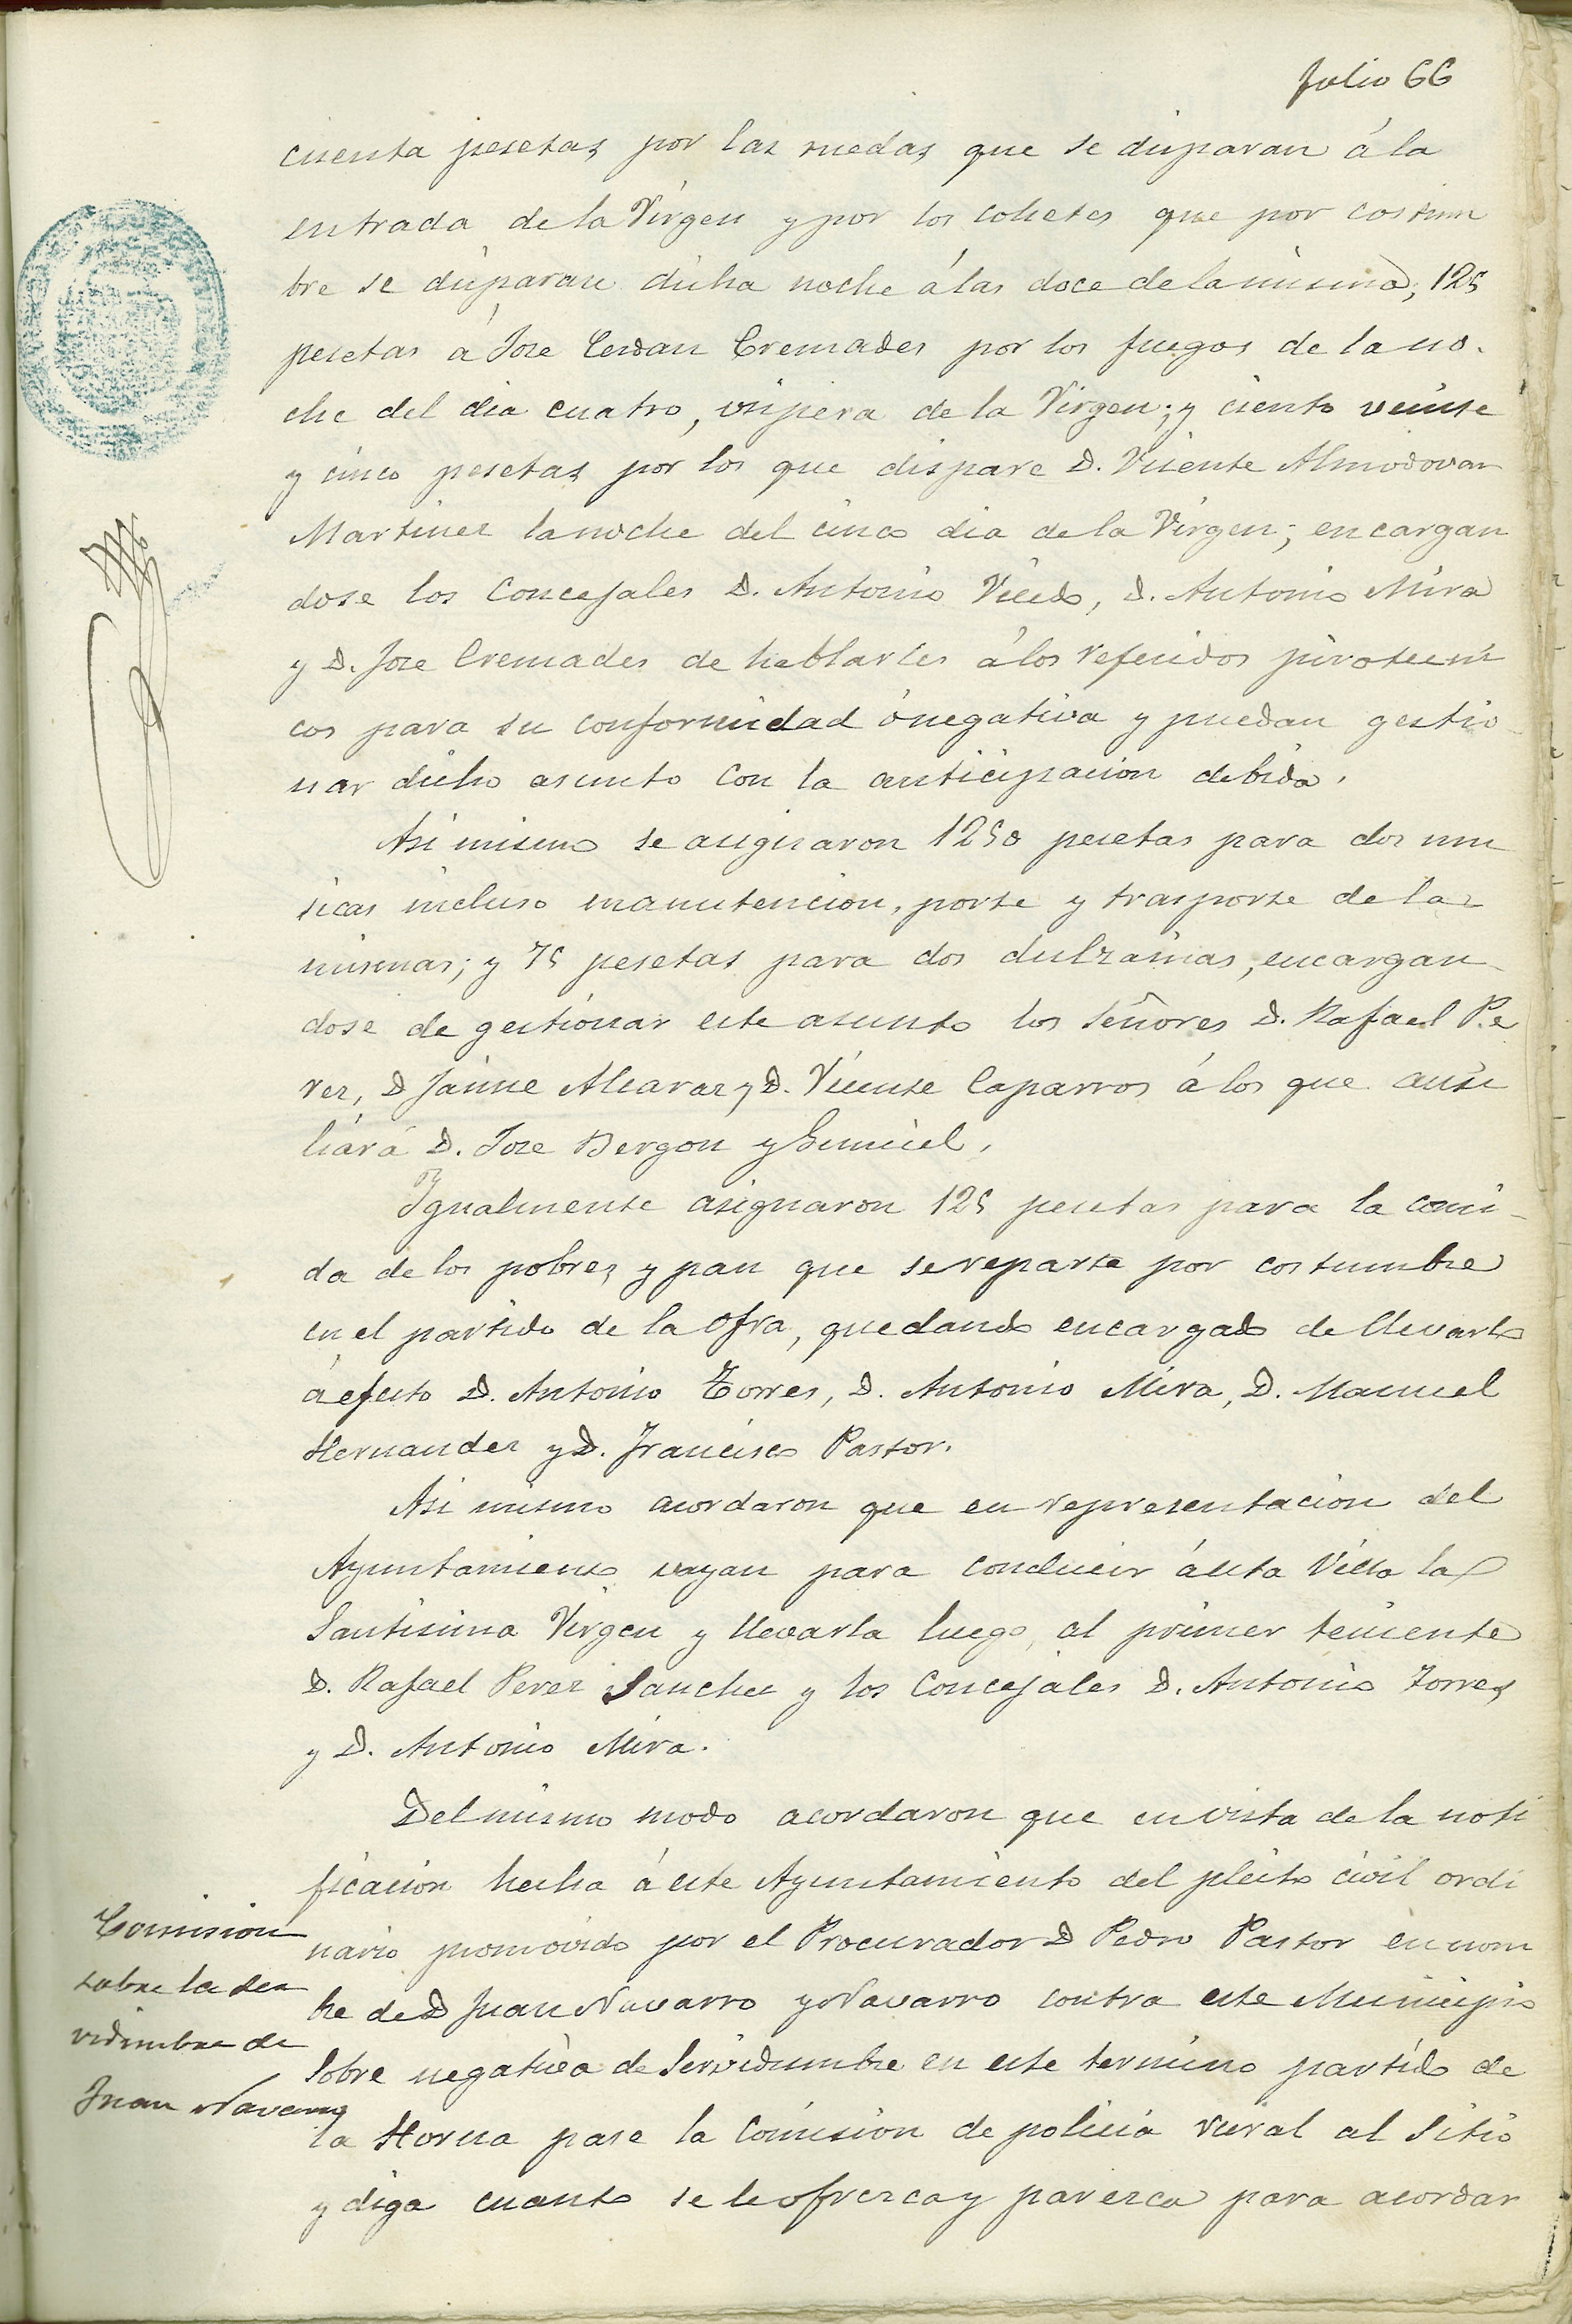 Folio 66
cuenta pesetas por las ruedas que se disparan á la
entrada de la Virgen y por los cohetes que por costum
bre se disparan dicha noche á las doce de la misma; 125
pesetas á Jose Cerdan Cremades por los fuegos de la no-
che del dia cuatro, vispera de la Virgen; y ciento veinte
y cinco pesetas por los que dispare D. Vicente Almodovar
Martinez la noche del cinco dia de la Virgen; encargan
dose los Concejales D. Antonio Vicedo, D. Antonio Mira
y D. Jose Cremades de hablarles á los referidos pirotecni
cos para su conformidad ó negativa y puedan gestio-
nar dicho asunto con la anticipacion debida.
Asi mismo se asignaron 1250 pesetas para dos mu
sicas incluso manutencion, porte y trasporte de las
mismas; y 75 pesetas para dos dulzainas, encargan-
dose de gestionar este asunto los Señores D. Rafael Pe
rez, D Jaime Alcaraz y D. Vicente Caparros á los que ausi
liará D. Jose Bergon y
Igualmente asignaron 125 pesetas para la comi-
da de los pobres y pan que se reparte por costumbre
en el partido de la Ofra, quedando encargado de llevarlo
á efecto D. Antonio Torres, D. Antonio Mira, D. Manuel
Hernandez y D. Francisco Pastor.
Asi mismo acordaron que en representacion del
Ayuntamiento vayan para conducir á esta Villa la
Santisima Virgen y llevarla luego, al primer teniente
D. Rafael Perez Sanchez y los Concejales D. Antonio Torres
y D. Antonio Mira.
Del mismo modo acordaron que en vista de la noti
ficacion hecha á este Ayuntamiento del pleito civil ordi
nario promovido por el Procurador D Pedro Pastor en nom
bre de D Juan Navarro y Navarro contra este Municipio
sobre negativa de servidumbre en este termino partido de
la Horna pase la Comision de policia rural al sitio
y diga cuanto se le ofrezca y parezca para acordar
Comision
sobre la ser
vidumbre de
Juan Navarro